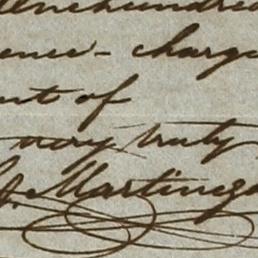 onehundred
ence - charge
nt of
very truly
J. Martinez